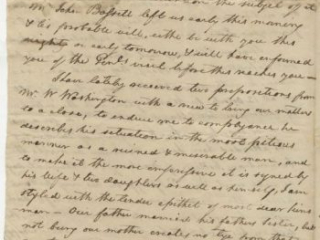 on the subject of it
Mr John Bassett left us early this morning
& is probable will, either be with you this
night or early tomorrow, & will have informed
you of the visit before this reaches you
I have lately received two propositions from
Mr. W Washington with a view to bring our matters
to a close, to induce me to compliance he
describes his situation in the most piteous
manner as a ruined & miserable man, and
to make it the more impressive it is signed by
his wife & two daughters as well as himself, I am
styled with the tender epithet of most dear
man — Our father married his fathers sister, but
not being our mother creates no tye from that